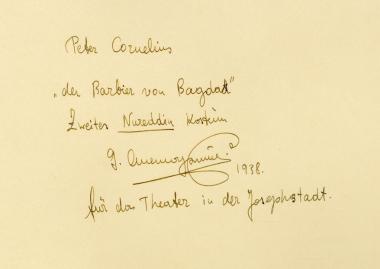 Peter Cornelius
„der Barbier von Bagdad"
Zweites Nureddin Kostüm
G.
1938.
für das Theater in der Josephstadt.